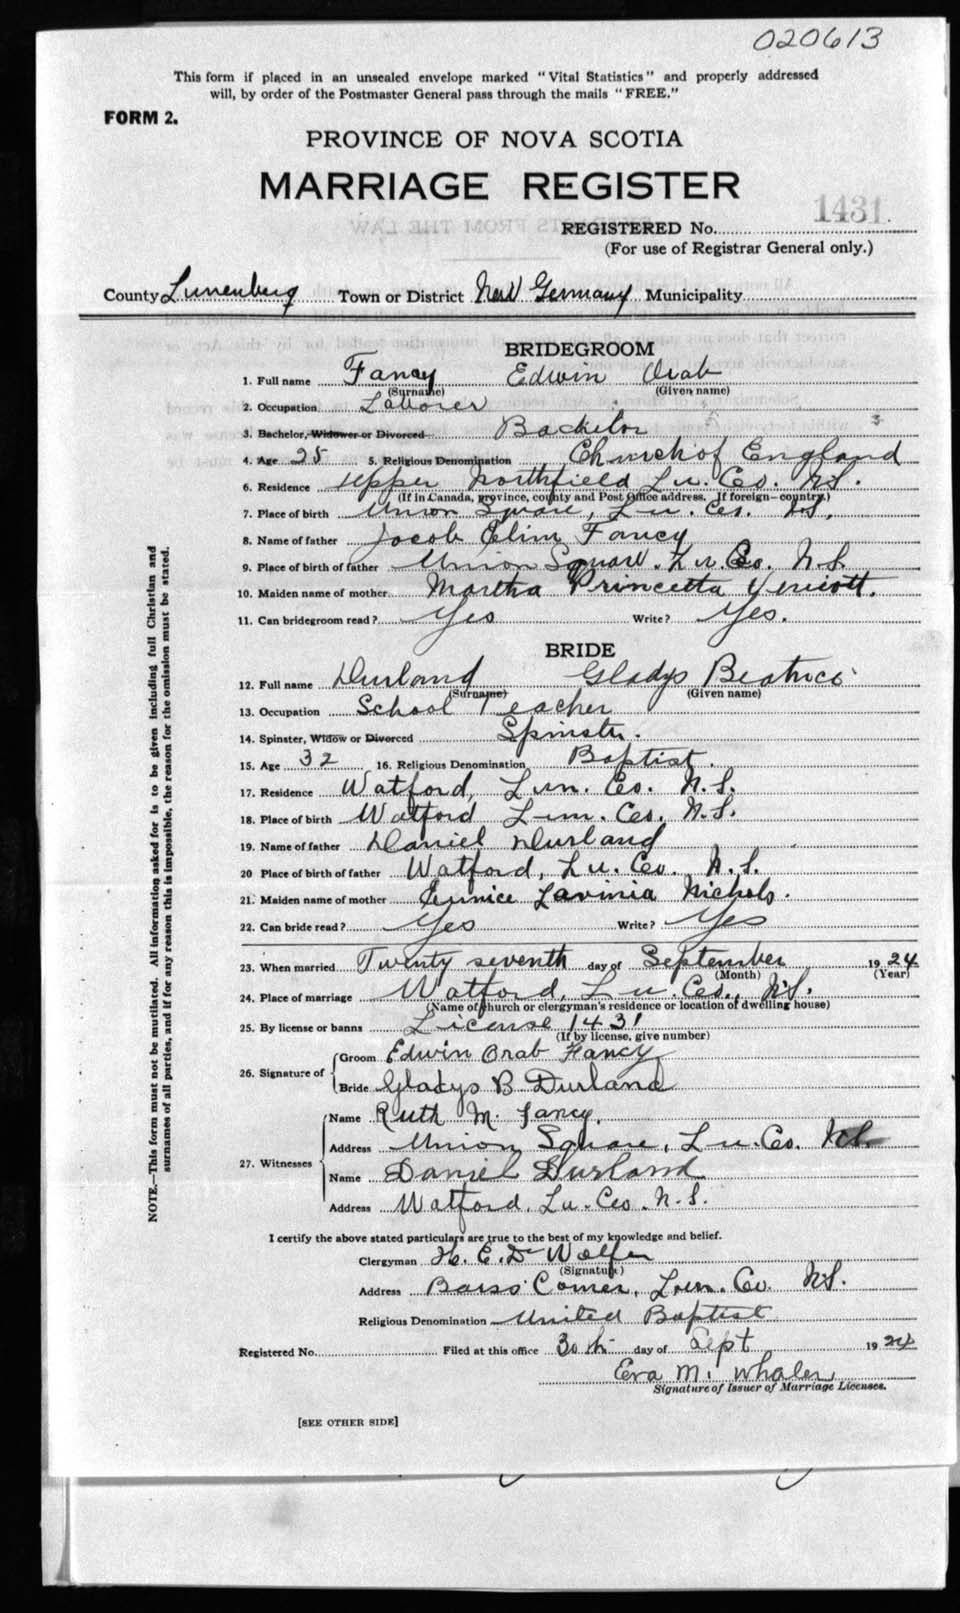 020613
This form if placed in an unsealed envelope marked "Vital Statistics" and properly addressed
will, by order of the Postmaster General pass through the mails "FREE."
FORM 2.
PROVINCE OF NOVA SCOTIA
MARRIAGE REGISTER
1431
REGISTERED No.
(For use of Registrar General only.)
County Lunenburg Town or District New Germany Municipality
BRIDEGROOM
1. Full name Fancy Edwin Orab
(Surname) (Given name)
2. Occupation Laborer
3. Bachelor, Widower or Divorced Bachelor
4. Age 25 5. Religious Denomination Church of England
6. Residence Upper Northfield Lu. Co. N.S.
(If in Canada, province, county and Post Office address. If foreign—country.)
7. Place of birth Union Square, Lu. Co. N.S.
8. Name of father Jacob Elim Fancy
9. Place of birth of father Union Square. Lu. Co. N.S.
10. Maiden name of mother Martha Princetta
11. Can bridegroom read? Yes Write? Yes.
BRIDE
12. Full name Durland Gladys Beatrice
(Surname) (Given name)
13. Occupation School Teacher
14. Spinster, Widow or Divorced Spinster.
15. Age 32 16. Religious Denomination Baptist.
17. Residence Watford, Lun. Co. N.S.
18. Place of birth Watford Lun. Co. N.S.
19. Name of father Daniel Durland
20 Place of birth of father Watford, Lu. Co. N.S.
21. Maiden name of mother Eunice Lavinia Nichols.
22. Can bride read? Yes Write? Yes
23. When married Twenty seventh day of September 1924
(Month) (Year)
24. Place of marriage Watford, Lu. Co., N.S.
(Name of church or clergyman's residence or location of dwelling house)
25. By license or banns License 1431
(If by license, give number)
26. Signature of Groom Edwin Orab Fancy
Bride Gladys B Durland
27. Witnesses Name Ruth M. Fancy.
Address Union Square, Lu. Co. N.S.
Name Daniel Durland
Address Watford. Lu. Co. N.S.
I certify the above stated particulars are true to the best of my knowledge and belief.
Clergyman H. E. DeWolfe
(Signature)
Address Barss Corner, Lun. Co. N.S.
Religious Denomination United Baptist
Registered No. Filed at this office 30th day of Sept 1924
Eva M. Whalen
Signature of Issuer of Marriage Licenses.
[SEE OTHER SIDE]
NOTE.—This form must not be mutilated. All information asked for is to be given including full Christian and
surnames of all parties, and if for any reason this is impossible, the reason for the omission must be stated.